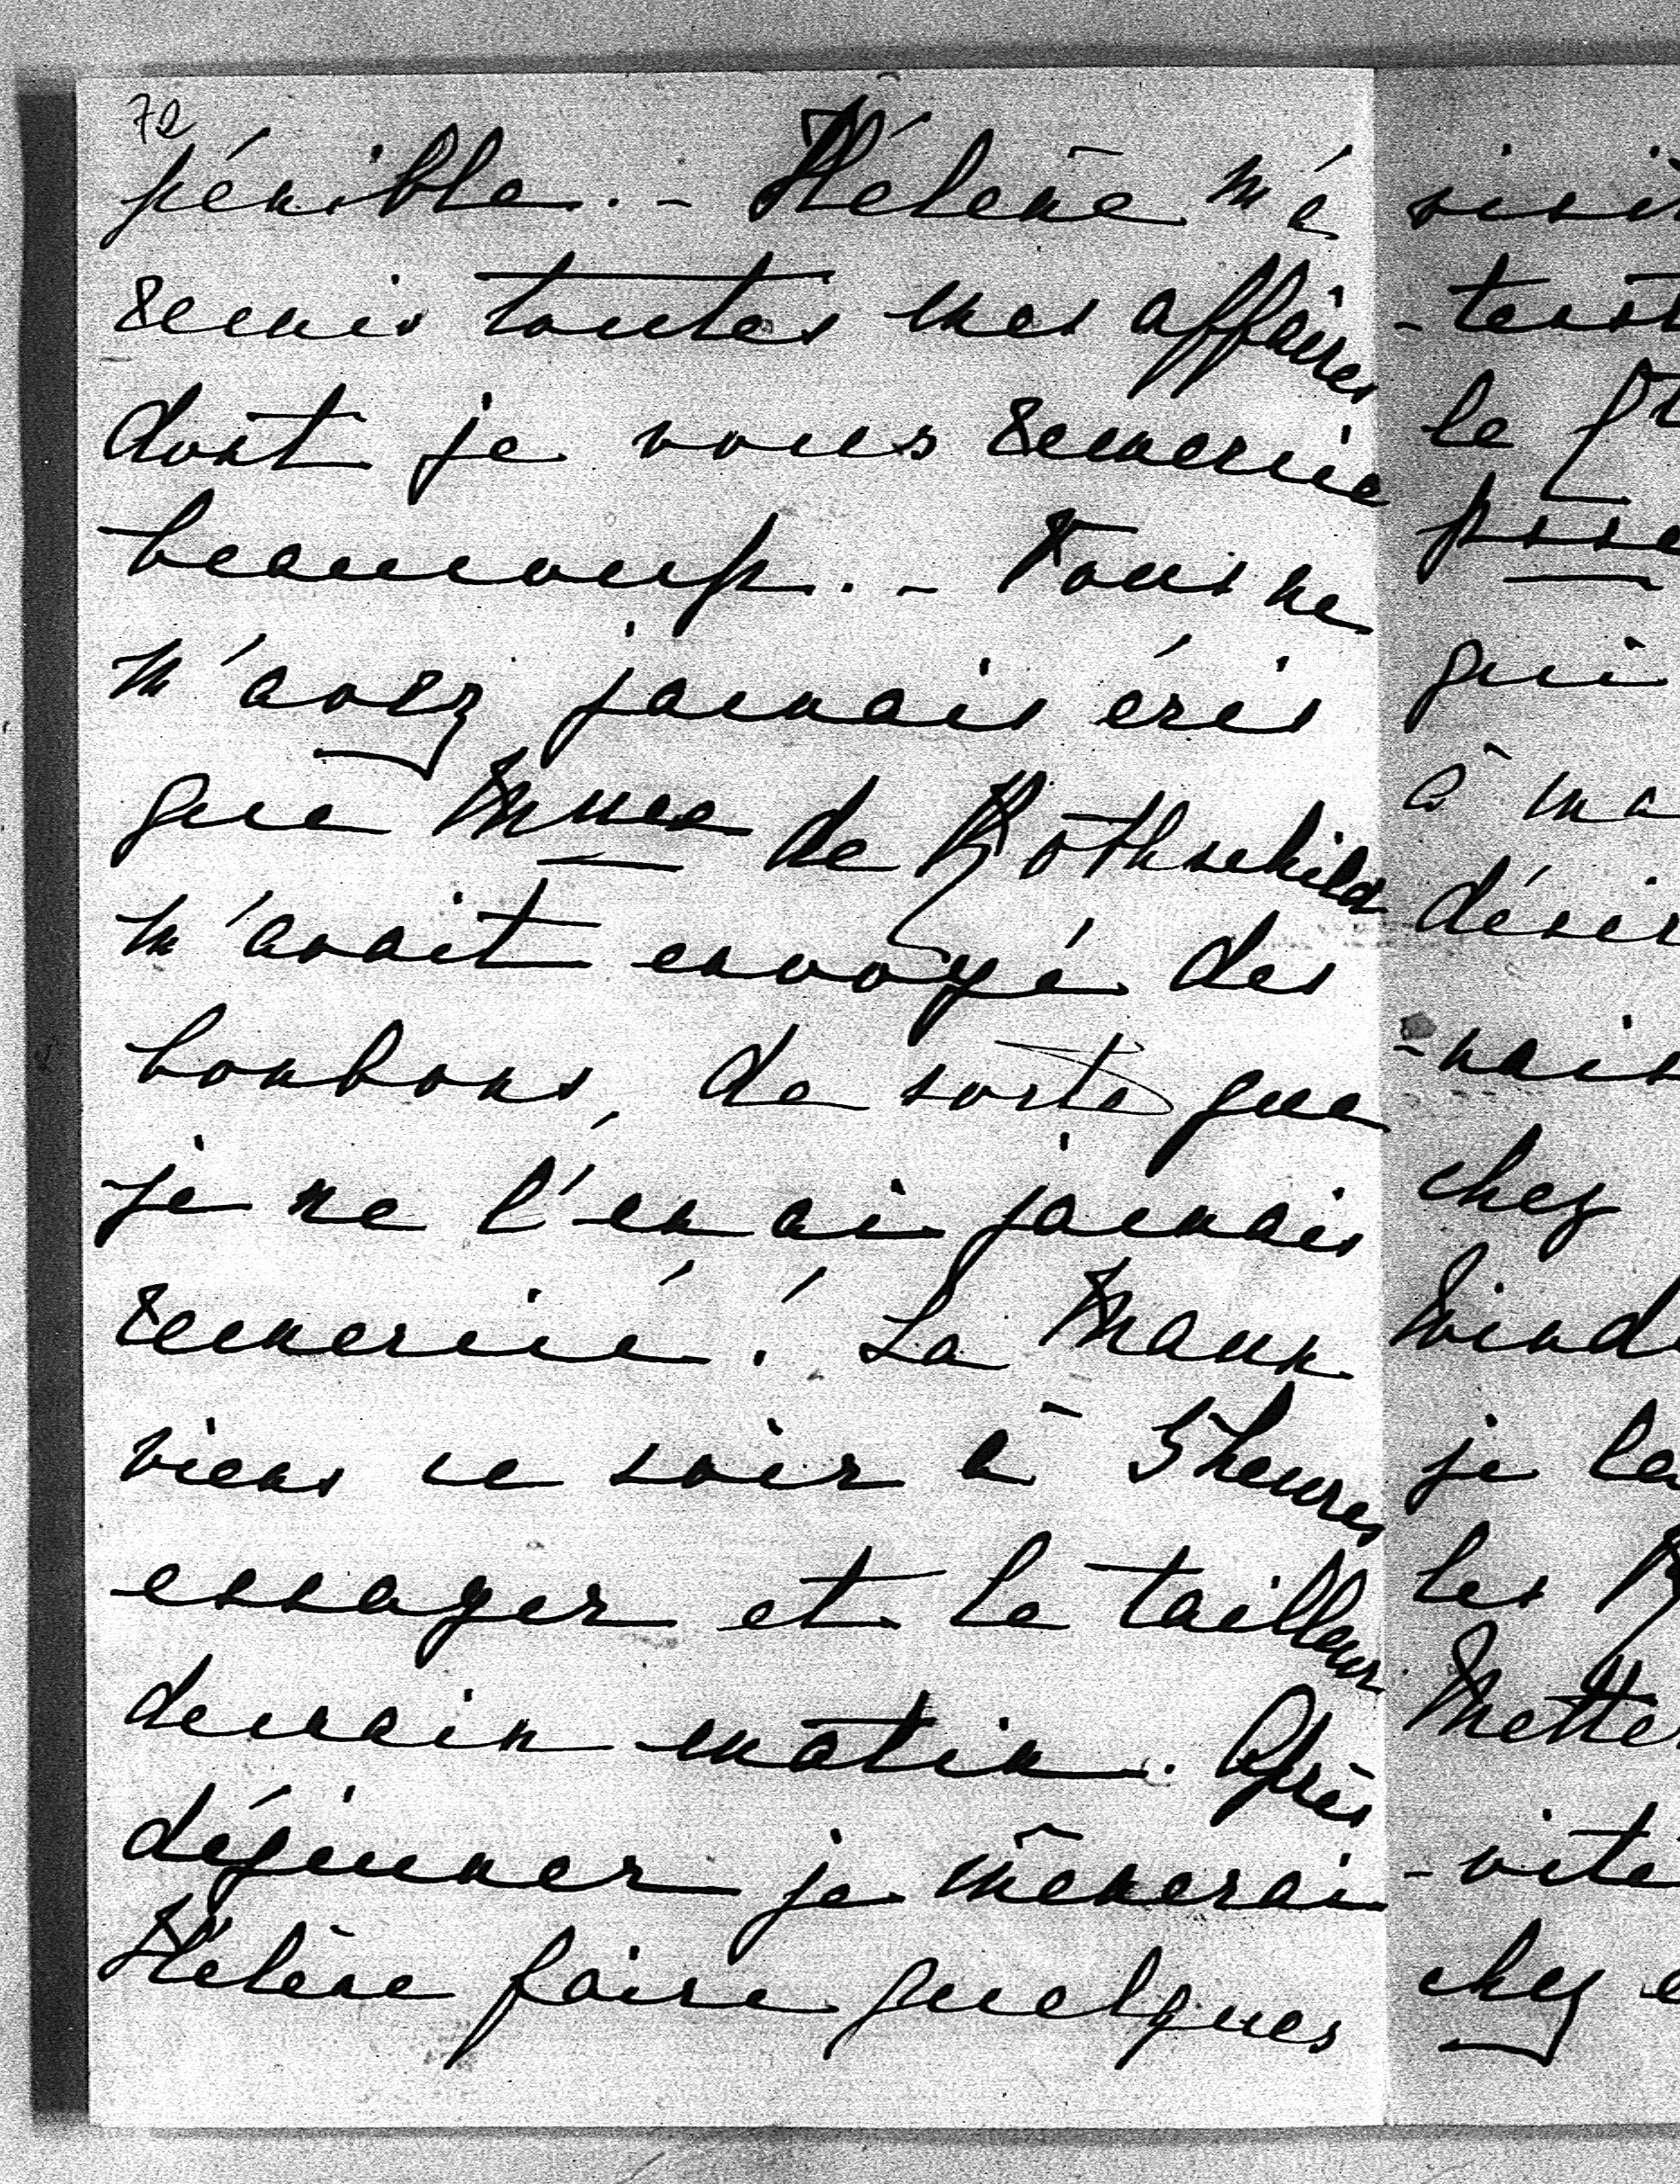 72
pénible. - Hélène m'a
remis toutes mes affaires
dont je vous remercie
beaucoup. - Vous ne
m'avez jamais écris
que Mme de Rothschild
m'avait envoyé des
bonbons, de sorte que
je ne l'en ai jamais
remercié! La Maun
viens ce soir à 5 heures
essayer et le tailleur
demain matin. Après
déjeuner je mènerai
Hélène faire quelques
le
qui
à ma
chez
je
les
-vite
chez